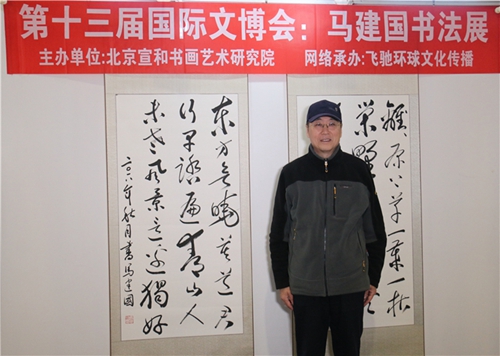 第十三届国际文博会：马建国书法展
主办单位:北京宣和书画艺术研究院 网络承办:飞驰环球文化传播
东方欲晓莫道君
行早踏遍青山人
未老风景这边独好
二〇一八年秋月書馬建國
原上草一岁一枯
荣野